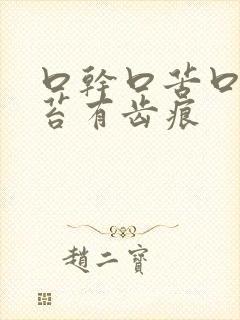 口幹口苦口
苔有齿痕
趙二寶